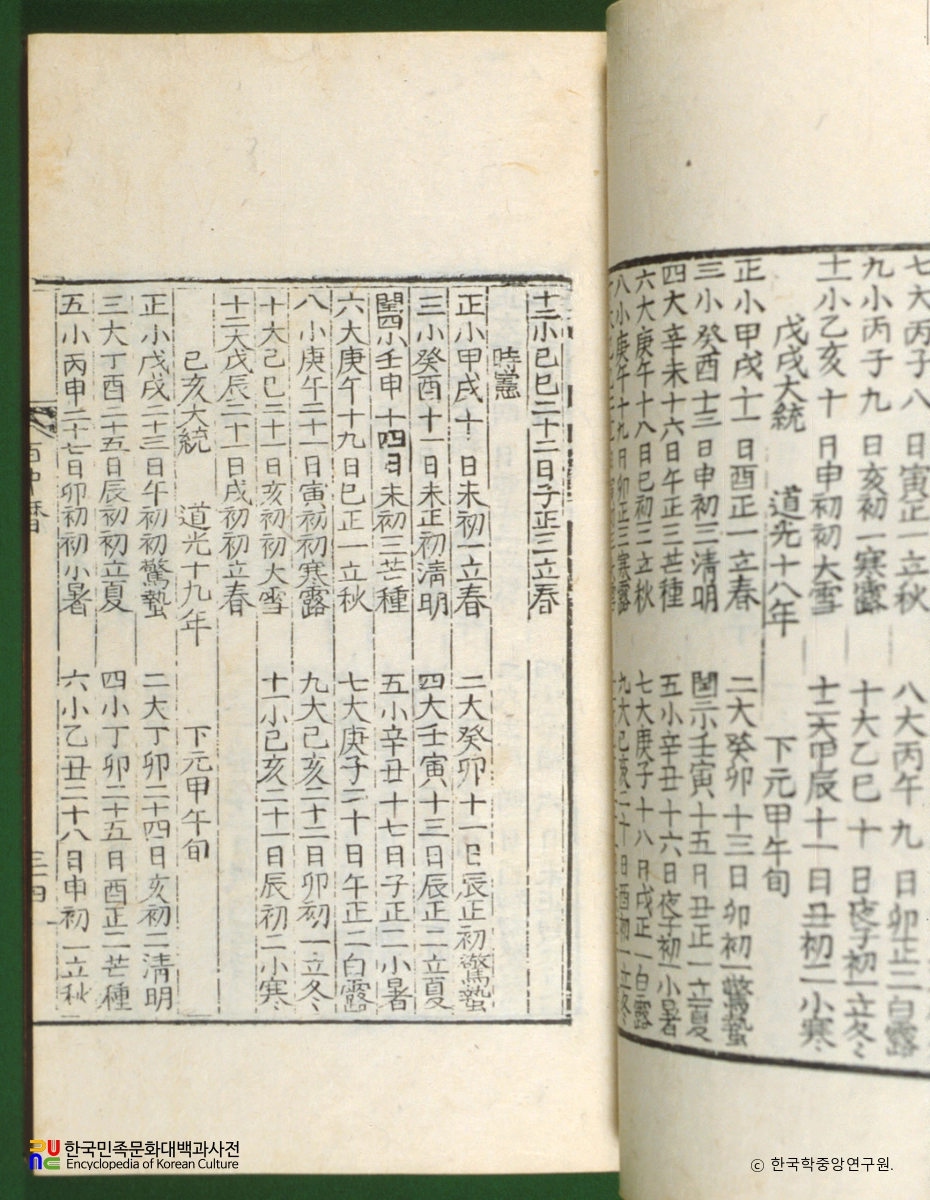 七大丙子八日寅正一立秋 八大丙午九日卯正二白露
九小丙子九日亥初一寒露 十大乙巳十日夜子初一立冬
十一小乙亥十日申初初大雪 十二大甲辰十一日丑初二小寒
戊戌大統 道光十八年 下元甲午旬
正小甲戌十一日酉正一立春 二大癸卯十三日卯初一驚蟄
三小癸酉十三日申初三清明 閏三小壬寅十五日丑正一立夏
四大辛未十六日午正三芒種 五小辛丑十六日夜子初一小暑
六大庚午十八日巳初三立秋 七大庚子十八日戌正一白露
八小庚午十九日卯正三寒露 九大己亥二十日酉初一立冬
十二小己巳二十二日子正三立春
時憲
正小甲戌十一日未初一立春 二大癸卯十一日辰正初驚蟄
三小癸酉十一日未正初清明 四大壬寅十三日辰正二立夏
閏四小壬申十四日未初三芒種 五小辛丑十七日子正二小暑
六大庚午十九日巳正一立秋 七大庚子二十日午正二白露
八小庚午二十一日寅初初寒露 九大己亥二十二日卯初一立冬
十大己巳二十一日亥初初大雪 十一小己亥二十一日辰初二小寒
十二大戊辰二十一日戌初初立春
己亥大統 道光十九年 下元甲午旬
正小戊戌二十三日午初初驚蟄 二大丁卯二十四日亥初二清明
三大丁酉二十五日辰初初立夏 四小丁卯二十五日酉正二芒種
五小丙申二十七日卯初初小暑 六小乙丑二十八日申初一立秋
百中曆 三四
한국민족문화대백과사전
Encyclopedia of Korean Culture
ⓒ 한국학중앙연구원.